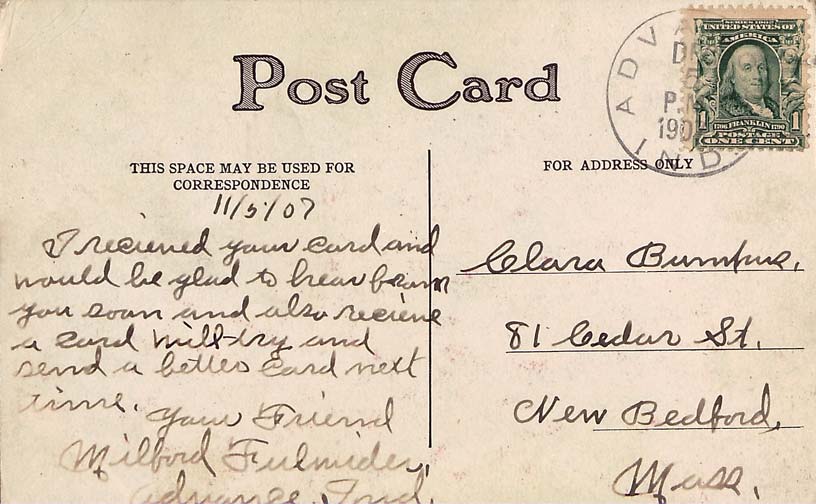 Post Card
THIS SPACE MAY BE USED FOR
CORRESPONDENCE
FOR ADDRESS ONLY
11/5/07
I recieved your card and
would be glad to hear from
you soon and also recieve
a card will try and
send a better card next
time.
Your Friend
Milford
Advance, Ind.
Clara Bumpus,
81 Cedar St.
New Bedford,
Mass.
ADV
DEC
5
P.M
190
IND
SERIES 1902
UNITED STATES OF
AMERICA
1706 FRANKLIN 1790
1 POSTAGE 1
ONE CENT